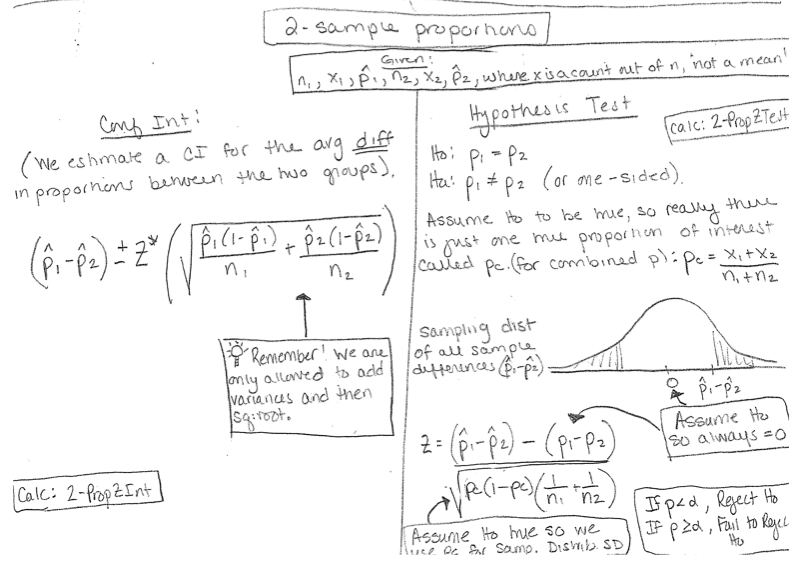 2-sample proportions
Given:
n₁, x₁, p̂₁, n₂, x₂, p̂₂, where x is a count out of n, not a mean!
Conf Int:
(We estimate a CI for the avg diff
in proportions between the two groups).
(p̂₁-p̂₂) ± Z* (√(p̂₁(1-p̂₁)/n₁ + p̂₂(1-p̂₂)/n₂))
Remember! We are
only allowed to add
variances and then
sq. root.
Calc: 2-PropZInt
Hypothesis Test
Calc: 2-PropZTest
Ho: p₁ = p₂
Ha: p₁ ≠ p₂ (or one-sided).
Assume Ho to be true, so really there
is just one true proportion of interest
called pc. (for combined p): pc = (x₁+x₂)/(n₁+n₂)
Sampling dist
of all sample
differences (p̂₁-p̂₂)
0 p̂₁-p̂₂
Assume Ho
so always = 0
Z = ((p̂₁-p̂₂) - (p₁-p₂))/√(pc(1-pc)(1/n₁+1/n₂))
Assume Ho true so we
use pc for Samp. Distrib. SD
If p<α, Reject Ho
If p≥α, Fail to Reject
Ho